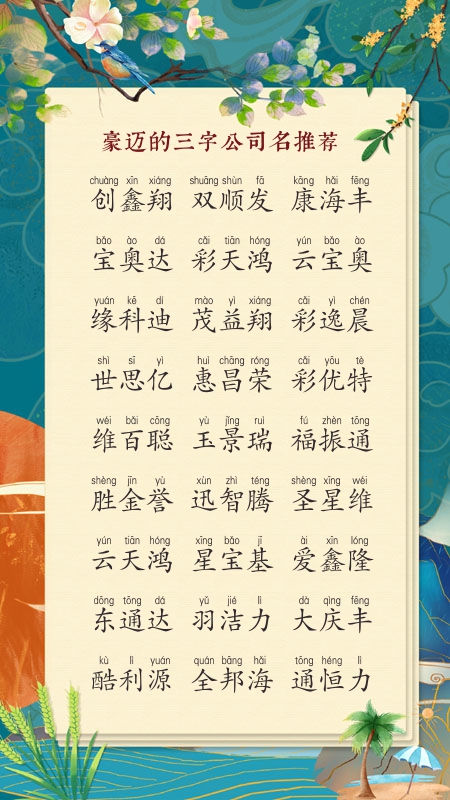 豪迈的三字公司名推荐
chuàng xīn xiáng shuāng shùn fā kāng hǎi fēng
创鑫翔 双顺发 康海丰
bǎo ào dá cǎi tiān hóng yún bǎo ào
宝奥达 彩天鸿 云宝奥
yuán kē dí mào yì xiáng cǎi yì chén
缘科迪 茂益翔 彩逸晨
shì sī yì huì chāng róng cǎi yōu tè
世思亿 惠昌荣 彩优特
wéi bǎi cōng yù jǐng ruì fú zhèn tōng
维百聪 玉景瑞 福振通
shèng jīn yù xùn zhì téng shèng xīng wéi
胜金誉 迅智腾 圣星维
yún tiān hóng xīng bǎo jī ài xīn lóng
云天鸿 星宝基 爱鑫隆
dōng tōng dá yǔ jié lì dà qìng fēng
东通达 羽洁力 大庆丰
kù lì yuán quán bāng hǎi tōng héng lì
酷利源 全邦海 通恒力